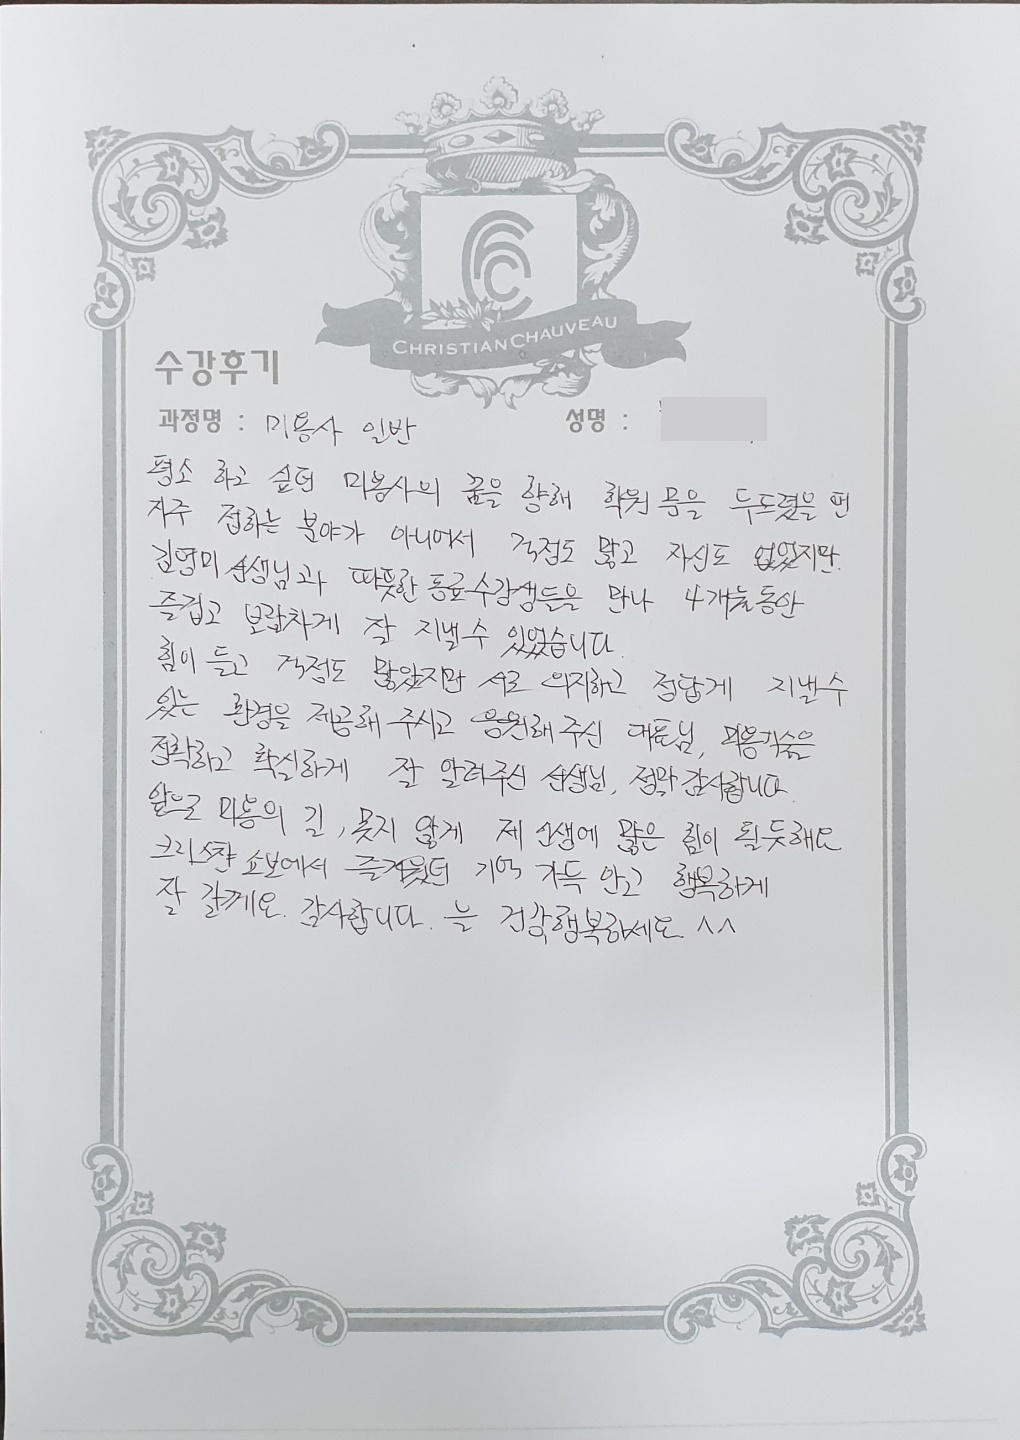 CHRISTIAN CHAUVEAU
수강후기
과정명 : 미용사 일반 성명 :
평소 하고 싶던 미용사의 꿈을 향해 학원 문을 두드렸을 땐
자주 접하는 분야가 아니어서 걱정도 많고 자신도 없었지만
김영미 선생님과 따뜻한 동료수강생들을 만나 4개월동안
즐겁고 보람차게 잘 지낼수 있었습니다.
힘이 들고 걱정도 많았지만 서로 의지하고 정답게 지낼수
있는 환경을 제공해 주시고 응원해 주신 대표님, 미용기술을
정확하고 확실하게 잘 알려주신 선생님, 정말 감사합니다.
앞으로 미용의 길, 못지 않게 제 인생에 많은 힘이 될듯해요
크리스챤 쇼보에서 즐거웠던 기억 가득 안고 행복하게
잘 갈께요. 감사합니다. 늘 건강행복하세요. ^^